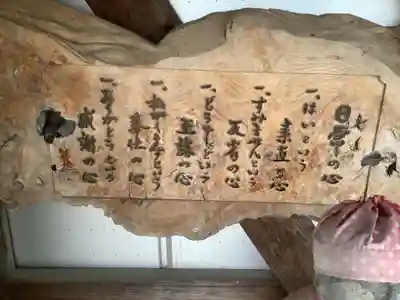 日常の心
一、はいという
素直の心
一、すみませんという
反省の心
一、どうぞという
互譲の心
一、私がしますという
奉仕の心
一、ありがとうという
感謝の心